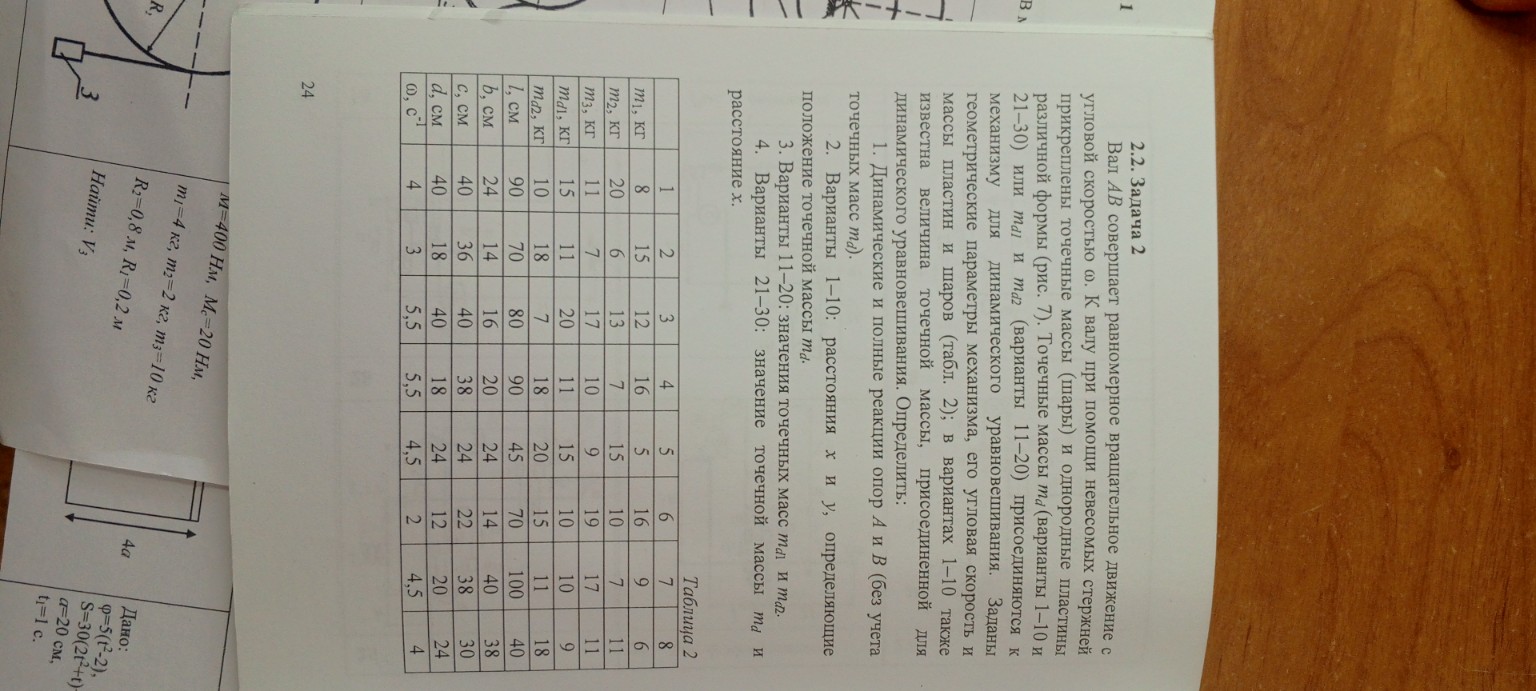 2.2. Задача 2
Вал AB совершает равномерное вращательное движение с
угловой скоростью ω. К валу при помощи невесомых стержней
прикреплены точечные массы (шары) и однородные пластины
различной формы (рис. 7). Точечные массы m_d (варианты 1–10 и
21–30) или m_d1 и m_d2 (варианты 11–20) присоединяются к
механизму для динамического уравновешивания. Заданы
геометрические параметры механизма, его угловая скорость и
массы пластин и шаров (табл. 2); в вариантах 1–10 также
известна величина точечной массы, присоединенной для
динамического уравновешивания. Определить:
1. Динамические и полные реакции опор A и B (без учета
точечных масс m_d).
2. Варианты 1–10: расстояния x и y, определяющие
положение точечной массы m_d.
3. Варианты 11–20: значения точечных масс m_d1 и m_d2.
4. Варианты 21–30: значение точечной массы m_d и
расстояние x.
Таблица 2
1 2 3 4 5 6 7 8
m₁, кг 8 15 12 16 5 16 9 6
m₂, кг 20 6 13 7 15 10 7 11
m₃, кг 11 7 17 10 9 19 17 11
m_d1, кг 15 11 20 11 15 10 10 9
m_d2, кг 10 18 7 18 20 15 11 18
l, см 90 70 80 90 45 70 100 40
b, см 24 14 16 20 24 14 40 38
c, см 40 36 40 38 24 22 38 30
d, см 40 18 40 18 24 12 20 24
ω, с⁻¹ 4 3 5,5 5,5 4,5 2 4,5 4
24
1
R,
3
M=400 Нм, M_c=20 Нм,
m₁=4 кг, m₂=2 кг, m₃=10 кг
R₂=0,8 м, R₁=0,2 м
Найти: V₃
4a
Дано:
φ=5(t²-2),
S=30(2t²+t)
a=20 см,
t₁=1 с.